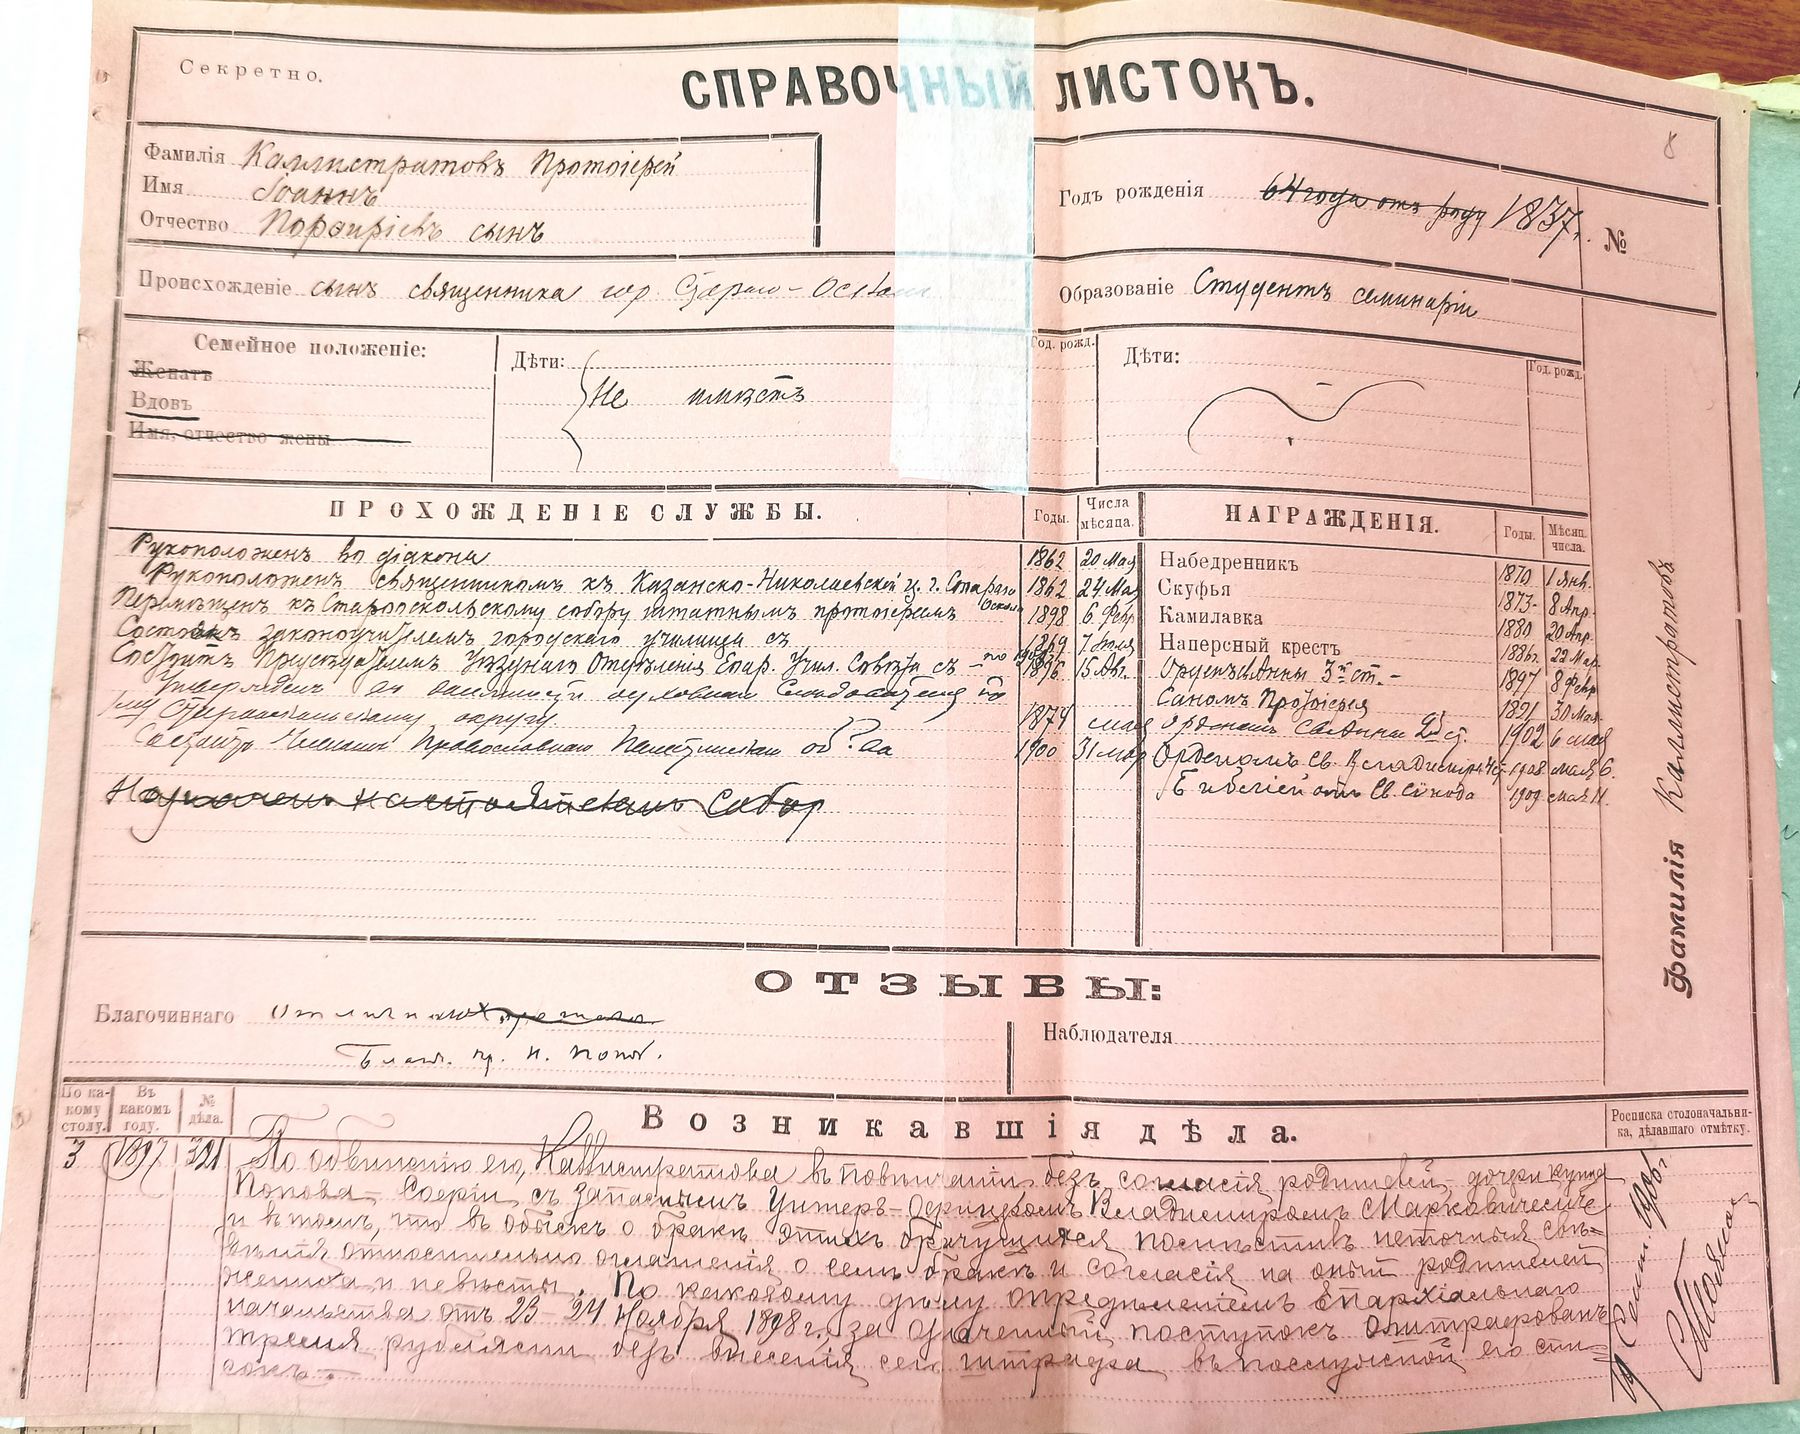 Секретно.
СПРАВОЧНЫЙ ЛИСТОКЪ.
8
Фамилія Каллистратовъ Протоіерей
Имя Іоаннъ
Отчество Порфиріевъ сынъ
Годъ рожденія 64 года отъ роду 1837 г.
№
Происхожденіе сынъ священника гор. Стараго-Оскола
Образованіе Студентъ семинаріи
Семейное положеніе:
Женатъ
Вдовъ
Имя, отчество жены
Дѣти:
Не имѣетъ
Год. рожд.
Дѣти:
Год. рожд.
ПРОХОЖДЕНІЕ СЛУЖБЫ.
Годы.
Числа мѣсяца.
Рукоположенъ во діакона 1862 20 Мая
Рукоположенъ священникомъ къ Казанско-Николаевской ц. г. Стараго Оскола 1862 24 Мая
Перемѣщенъ къ Старооскольскому собору штатнымъ протоіереемъ 1898 6 Фев
Состоялъ законоучителемъ городского училища съ 1869 7 Іюля
Состоитъ Предсѣдателемъ Уѣзднаго Отдѣленія Епар. Учил. Совѣта съ 1896 15 Авг.
Утвержденъ въ должности духовнаго Слѣдователя по
1му Старооскольскому округу 1874 мая
Состоитъ Членомъ Православнаго Палестинскаго об-ва 1900 31 мар
Назначенъ настоятелемъ Собор
НАГРАЖДЕНІЯ.
Годы.
Мѣсяц. числа.
Набедренникъ 1870 1 Янв.
Скуфья 1873 8 Апр.
Камилавка 1880 20 Апр.
Наперсный крестъ 1886 г. 22 Мар.
Орденъ Анны 3й ст. 1897 8 Февр
Саномъ Протоіерея 1891 30 Мая
Орденомъ Св. Анны 2й ст. 1902 6 мая
Орденомъ Св. Владиміра 4 ст. 1908 мая 6.
Библіей отъ Св. Синода 1909 мая 11.
Фамилія Каллистратовъ
ОТЗЫВЫ:
Благочиннаго
Благ. пр. Н. Попов.
Наблюдателя
По какому столу.
Въ какомъ году.
№ дѣла.
Возникавшія дѣла.
Росписка столоначальника, дѣлавшаго отмѣтку.
3 1897 321 По обвиненію его, Каллистратова въ повѣнчаніи безъ согласія родителей, дочери купца
Попова Софіи съ запаснымъ Унтеръ-Офицеромъ Владиміромъ Марковичемъ
и въ томъ, что въ обыскъ о бракѣ этихъ брачущихся помѣстилъ неточныя свѣ-
дѣнія относительно оглашенія о семъ бракѣ и согласія на оный родителей
жениха и невѣсты. По каковому дѣлу опредѣленіемъ Епархіальнаго
начальства отъ 23-24 Ноября 1898 г. за означенный поступокъ оштрафованъ
тремя рублями безъ внесенія сего штрафа въ послужной его спи-
сокъ.